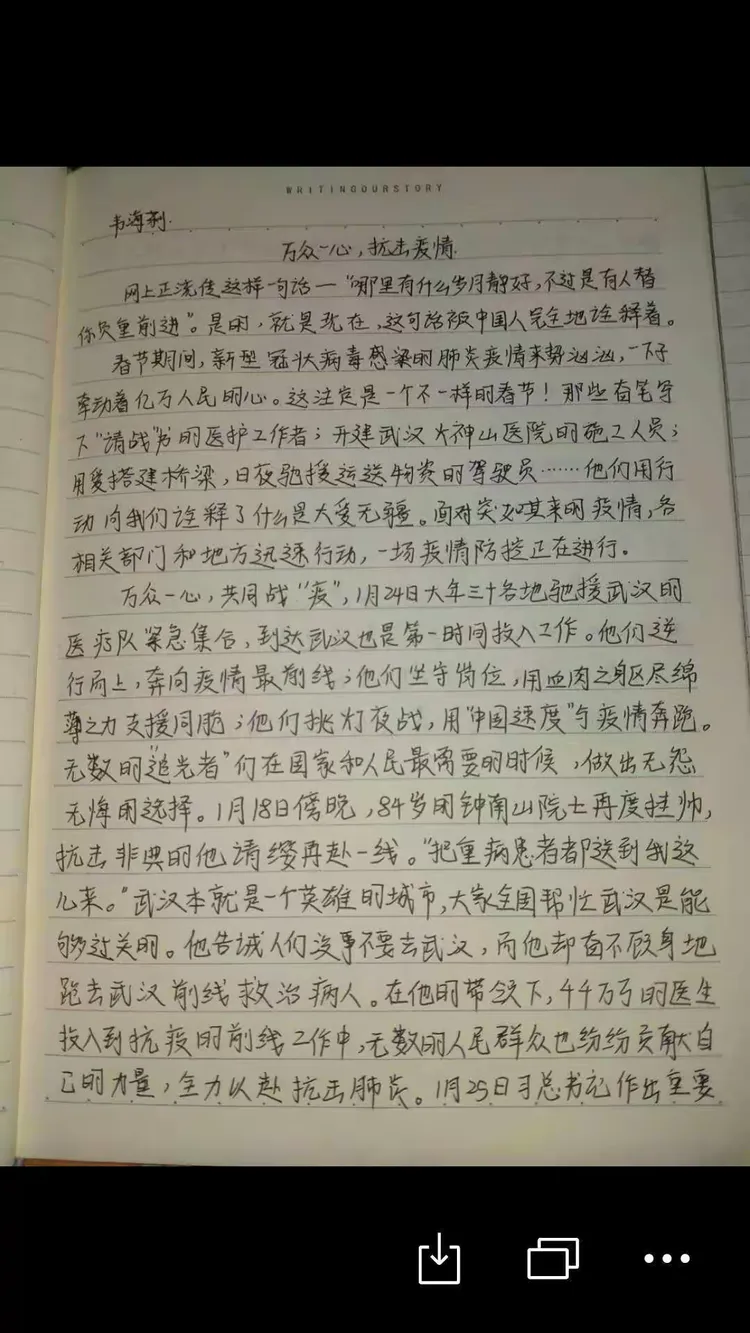 WRITINGOURSTORY
韦海荆.
万众一心，抗击疫情.
网上正流传这样一句话—“哪里有什么岁月静好，不过是有人替
你负重前进”。是的，就是现在，这句话被中国人完全地诠释着。
春节期间，新型冠状病毒感染的肺炎疫情来势汹汹，一下子
牵动着亿万人民的心。这注定是一个不一样的春节！那些奋笔写
下“请战”书的医护工作者；开建武汉火神山医院的施工人员；
用爱搭建桥梁，日夜驰援运送物资的驾驶员……他们用行
动向我们诠释了什么是大爱无疆。面对突如其来的疫情，各
相关部门和地方迅速行动，一场疫情防控正在进行。
万众一心，共同战“疫”，1月24日大年三十各地驰援武汉的
医疗队紧急集合，到达武汉也是第一时间投入工作。他们逆
行而上，奔向疫情最前线；他们坐守岗位，用血肉之身区尽绵
薄之力支援同胞；他们挑灯夜战，用“中国速度”与疫情奔跑。
无数的“追光者”们在国家和人民最需要的时候，做出无怨
无悔的选择。1月18日傍晚，84岁的钟南山院士再度挂帅，
抗击非典的他请缨再赴一线。“把重病患者都送到我这
儿来。”武汉本就是一个英雄的城市，大家全国帮忙武汉是能
够过关的。他告诫人们没事不要去武汉，而他却奋不顾身地
跑去武汉前线救治病人。在他的带领下，44万丂的医生
投入到抗疫的前线工作中，无数的人民群众也纷纷贡献自
己的力量，全力以赴抗击肺炎。1月25日习总书记作出重要